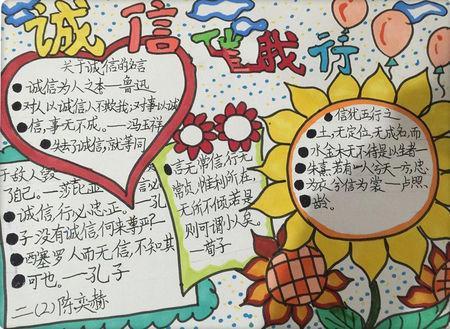 诚信伴我行
关于诚信的名言
诚信为人之本——鲁迅
对人以诚信人不欺我;对事以诚
信,事无不成。——冯玉祥
失去了诚信,就等同
于敌人毁
自己。——莎比亚
诚信行必忠正。——孔
子没有诚信何来尊严?——
西塞罗人而无信,不知其
可也。——孔子
二(2)陈奕赫
言无常信行无
常贞,惟利所在,
无所不倾若是
则可谓小人矣。
——荀子
信犹五行之
土,无定位,无成名,而
水金木无不待是以生者—
朱熹若有人兮天一方,忠
为衣兮信为裳——卢照
龄。